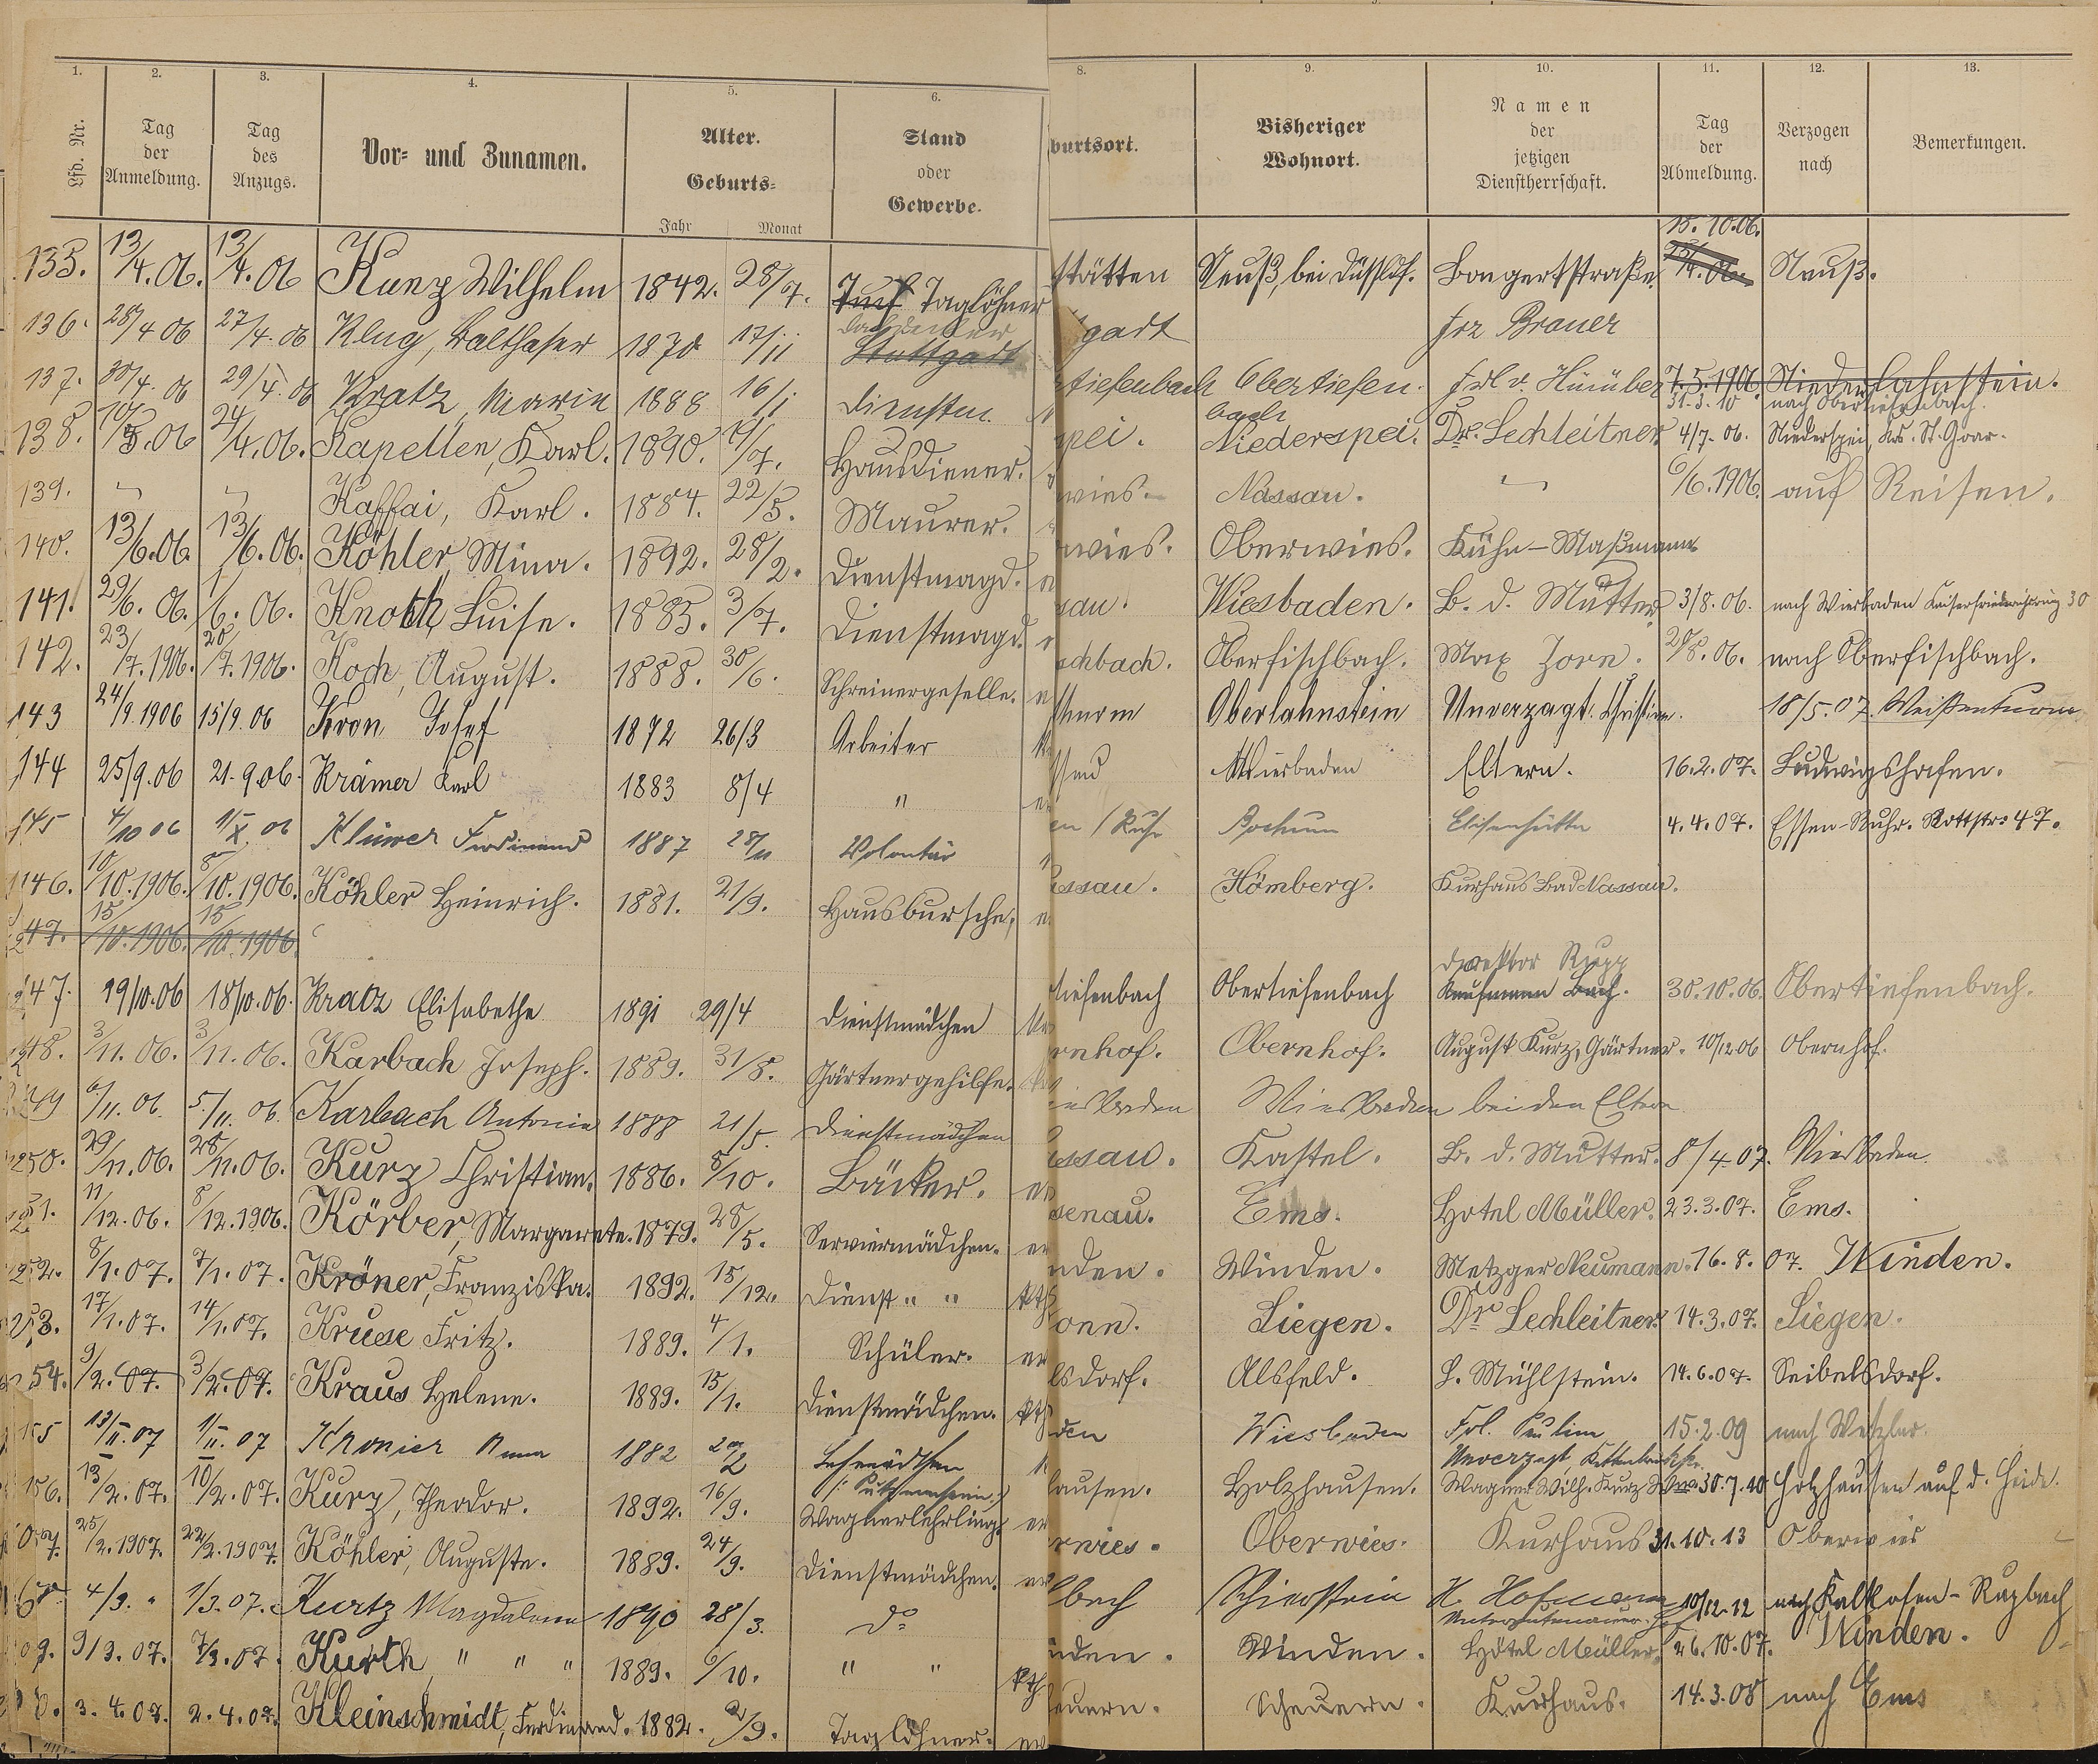 1. 2. 3. 4. 5. 6. 8. 9. 10. 11. 12. 13.
Lfd. Nr. Tag der Anmeldung. Tag des Anzugs. Vor- und Zunamen. Alter. Geburts- Jahr Monat Stand oder Gewerbe. burtsort. Bisheriger Wohnort. Namen der jetzigen Dienstherrschaft. Tag der Abmeldung. Verzogen nach Bemerkungen.
15.10.06.
135. 13/4.06. 13/4.06 Kunz Wilhelm 1842. 28/7. Taglöhner stätten Neuß, bei Düssldf. Bongertstraße. Neuß.
136. 28/4 06 27/4.06 Klug, Balthaser 1870 17/11 Stuttgadt gadt Frz Brauer
137. 30/4.06 29/4.06 Kratz, Marie 1888 16/1 Dienstm. tiefenbach Obertiefen. Frl v. Hinüber 7.5.1906 Niederlahnstein.
bach 31.3.10 nach Obertiefenbach.
138. 10/5.06 24/4.06. Kapellen, Karl. 1890. /7. Hausdiener. pei. Niederspei. Dr. Lechleitner 4/7.06. Niederspei, Krs. St. Goar.
139. " " Kaffai, Karl. 1884. 22/5. Maurer. wies. Nassau. " 6/6.1906. auf Reisen.
140. 13/6.06. 13/6.06. Köhler, Mina. 1892. 28/2. Dienstmagd. wies. Oberwies. Kühn-Maßmann
141. 29/6.06. 1/6.06. Knoth, Luise. 1885. 3/7. Dienstmagd. sau. Wiesbaden. B. d. Mutter. 3/8.06. nach Wiesbaden Kaiserfriedrichring 30
142. 23/7.1906. 20/7.1906. Koch, August. 1888. 30/6. Schreinergeselle. chbach. Oberfischbach. Max Zorn. 28/8.06. nach Oberfischbach.
143 24/9.1906 15/9.06 Kron Josef 1872 26/3 Arbeiter Oberlahnstein Unverzagt. Christian. 18/5.07. Weißenturm
144 25/9.06 21.9.06. Krämer Karl 1883 8/4 " Wiesbaden Eltern. 16.2.07. Ludwigshafen.
145 4/10 06 1/X.06 Klüwer Ferdinand 1887 28/11 Volontär en /Ruhr Bochum Elisenhütte 4.4.07. Essen-Ruhr. Rottstr. 47.
146. 10/10.1906. 8/10.1906. Köhler Heinrich. 1881. 21/9. Hausbursche, ssau. Hömberg. Kurhaus Bad Nassau.
47. 15/10.1906. 15/10.1906.
Direktor Rupp
147. 19/10.06 18/10.06. Kratz Elisabethe 1891 29/4 Dienstmädchen tiefenbach Obertiefenbach Kaufmann Bach. 30.10.06. Obertiefenbach.
48. 3/11.06. 3/11.06. Karbach Joseph. 1889. 31/8. Gärtnergehilfe. rnhof. Obernhof. August Kurz, Gärtner. 10/12.06 Obernhof.
49 6/11.06. 5./11.06. Karbach Antonie 1888 21/5. Dienstmädchen iesbaden Wiesbaden bei den Eltern
250. 29/11.06. 28/11.06. Kurz Christian. 1886. 8/10. Bäcker. ssau. Kastel. B. d. Mutter. 8/4 07. Wiesbaden.
251. 11/12.06. 8/12.1906. Körber, Margarete. 1879. 28/5. Serviermädchen. senau. Ems. Hotel Müller. 23.3.07. Ems.
252. 8/1.07. 7/1.07. Kröner, Franziska. 1892. 15/12. Dienst " " nden. Winden. Metzger Neumann. 16.8.07. Winden.
253. 17/1.07. 14/1.07. Kruse Fritz. 1889. 4/1. Schüler. onn. Siegen. Dr Lechleitner 14.3.07. Siegen.
254. 9/2.07. 3/2.07. Kraus Helene. 1889. 15/1. Dienstmädchen. lsdorf. Alsfeld. L. Mühlstein. 14.6.07. Seibelsdorf.
155 13/II.07 1/II.07 Kronier Anna 1882 20/2 den Wiesbaden Frl. Pauline 15.2.09 nach Wetzlar.
Unverzagt, Kettenbrückstr.
156. 13/2.07. 10/2.07. Kurz, Theodor. 1892. 16/9. Wagnerlehrling. hausen. Holzhausen. Wagner Wilh. Kurz Wwe. 30.7.10 Holzhausen auf d. Heide.
7. 25/2.1907. 22/2.1907. Köhler, Auguste. 1889. 24/9. Dienstmädchen. rwies. Oberwies. Kurhaus 31.10.13 Oberwies
4/3. " 1/3.07. Kurtz Magdalena 1890 28/3. do bach Schierstein H. Hofmann 10/12.12 nach Kalkofen-Rupbach
9. 9/3.07. 7/3.07. Kurth, " " " 1889. 6/10. " " nden. Winden. Hôtel Müller. 26.10.07. Winden.
3.4.07. 2.4.07. Kleinschmidt, Ferdinand. 1882. /9. Taglöhner. euern. Scheuern. Kurhaus. 14.3.08 nach Ems